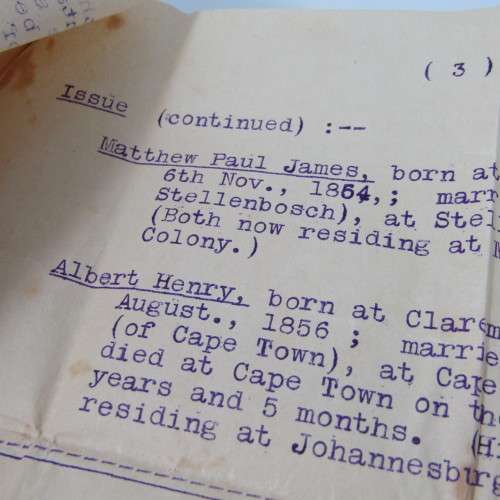 ( 3 )
Issue (continued) :--
Matthew Paul James, born at
6th Nov., 1864,; marri
Stellenbosch), at Stel
(Both now residing at M
Colony.)
Albert Henry, born at Clarem
August., 1856 ; marrie
(of Cape Town), at Cape
died at Cape Town on the
years and 5 months. (Hi
residing at Johannesburg